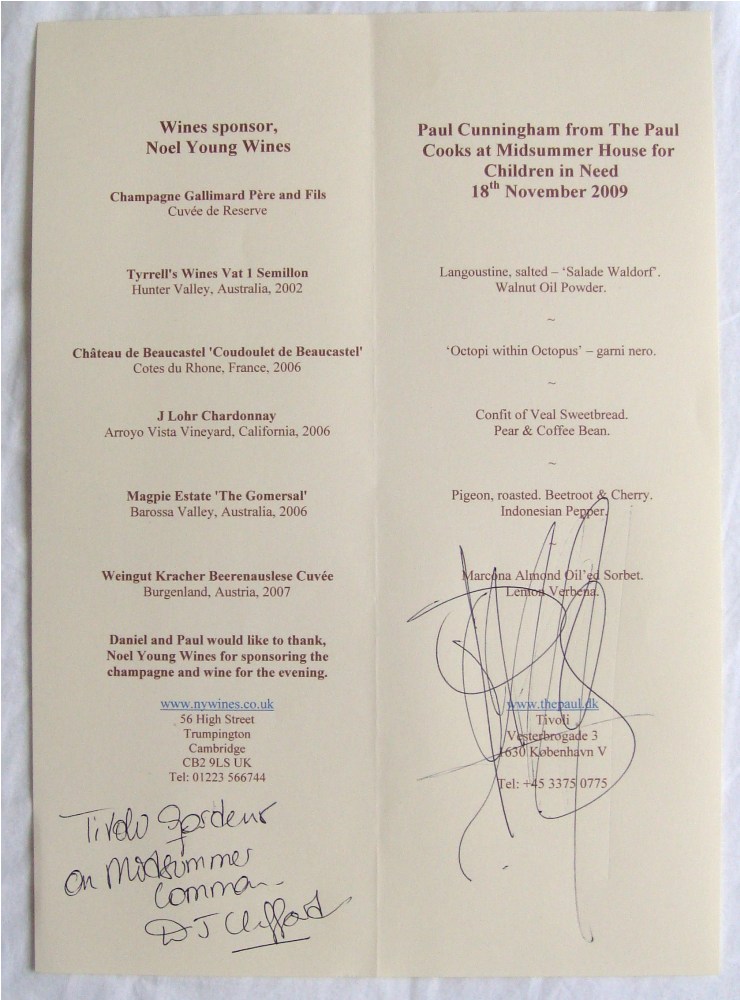 Wines sponsor,
Noel Young Wines
Champagne Gallimard Père and Fils
Cuvée de Reserve
Tyrrell's Wines Vat 1 Semillon
Hunter Valley, Australia, 2002
Château de Beaucastel 'Coudoulet de Beaucastel'
Cotes du Rhone, France, 2006
J Lohr Chardonnay
Arroyo Vista Vineyard, California, 2006
Magpie Estate 'The Gomersal'
Barossa Valley, Australia, 2006
Weingut Kracher Beerenauslese Cuvée
Burgenland, Austria, 2007
Daniel and Paul would like to thank,
Noel Young Wines for sponsoring the
champagne and wine for the evening.
www.nywines.co.uk
56 High Street
Trumpington
Cambridge
CB2 9LS UK
Tel: 01223 566744
Tivoli Gardens
on Midsummer
Common
D J Clifford
Paul Cunningham from The Paul
Cooks at Midsummer House for
Children in Need
18th November 2009
Langoustine, salted – ‘Salade Waldorf’.
Walnut Oil Powder.
~
‘Octopi within Octopus’ – garni nero.
~
Confit of Veal Sweetbread.
Pear & Coffee Bean.
~
Pigeon, roasted. Beetroot & Cherry.
Indonesian Pepper.
Marcona Almond Oil’ed Sorbet.
Lemon Verbena.
www.thepaul.dk
Tivoli
Vesterbrogade 3
1630 København V
Tel: +45 3375 0775